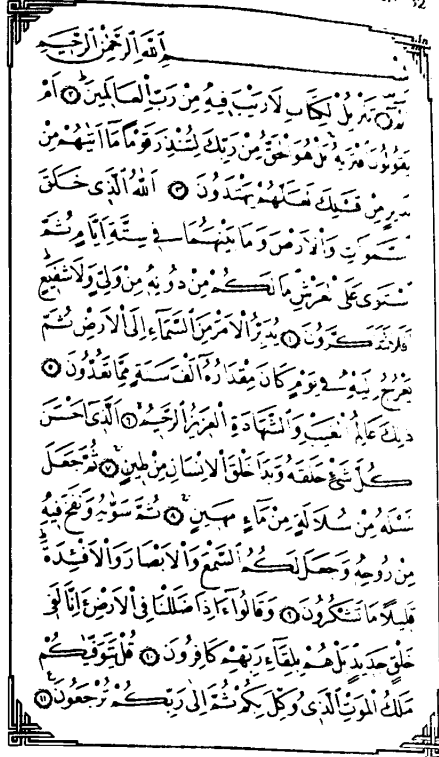 32
بِسْمِ اللهِ الرَّحْمٰنِ الرَّحِيمِ
الٓمٓ ۝١ تَنْزِيلُ الْكِتَابِ لَا رَيْبَ فِيهِ مِنْ رَبِّ الْعَالَمِينَ ۝٢ اَمْ
يَقُولُونَ افْتَرٰيهُ بَلْ هُوَ الْحَقُّ مِنْ رَبِّكَ لِتُنْذِرَ قَوْمًا مَا اَتٰيهُمْ مِنْ
نَذِيرٍ مِنْ قَبْلِكَ لَعَلَّهُمْ يَهْتَدُونَ ۝٣ اَللهُ الَّذِى خَلَقَ
السَّمٰوَاتِ وَالْاَرْضَ وَمَا بَيْنَهُمَا فِى سِتَّةِ اَيَّامٍ ثُمَّ
اسْتَوٰى عَلَى الْعَرْشِ مَا لَكُمْ مِنْ دُونِهِ مِنْ وَلِىٍّ وَلَا شَفِيعٍ
اَفَلَا تَتَذَكَّرُونَ ۝٤ يُدَبِّرُ الْاَمْرَ مِنَ السَّمَاءِ اِلَى الْاَرْضِ ثُمَّ
يَعْرُجُ اِلَيْهِ فِى يَوْمٍ كَانَ مِقْدَارُهُ اَلْفَ سَنَةٍ مِمَّا تَعُدُّونَ ۝٥
ذٰلِكَ عَالِمُ الْغَيْبِ وَالشَّهَادَةِ الْعَزِيزُ الرَّحِيمُ ۝٦ اَلَّذِى اَحْسَنَ
كُلَّ شَىْءٍ خَلَقَهُ وَبَدَاَ خَلْقَ الْاِنْسَانِ مِنْ طِينٍ ۝٧ ثُمَّ جَعَلَ
نَسْلَهُ مِنْ سُلَالَةٍ مِنْ مَاءٍ مَهِينٍ ۝٨ ثُمَّ سَوّٰيهُ وَنَفَخَ فِيهِ
مِنْ رُوحِهِ وَجَعَلَ لَكُمُ السَّمْعَ وَالْاَبْصَارَ وَالْاَفْئِدَةَ
قَلِيلًا مَا تَشْكُرُونَ ۝٩ وَقَالُوا ءَاِذَا ضَلَلْنَا فِى الْاَرْضِ ءَاِنَّا لَفِى
خَلْقٍ جَدِيدٍ بَلْ هُمْ بِلِقَاءِ رَبِّهِمْ كَافِرُونَ ۝١٠ قُلْ يَتَوَفّٰيكُمْ
مَلَكُ الْمَوْتِ الَّذِى وُكِّلَ بِكُمْ ثُمَّ اِلٰى رَبِّكُمْ تُرْجَعُونَ ۝١١